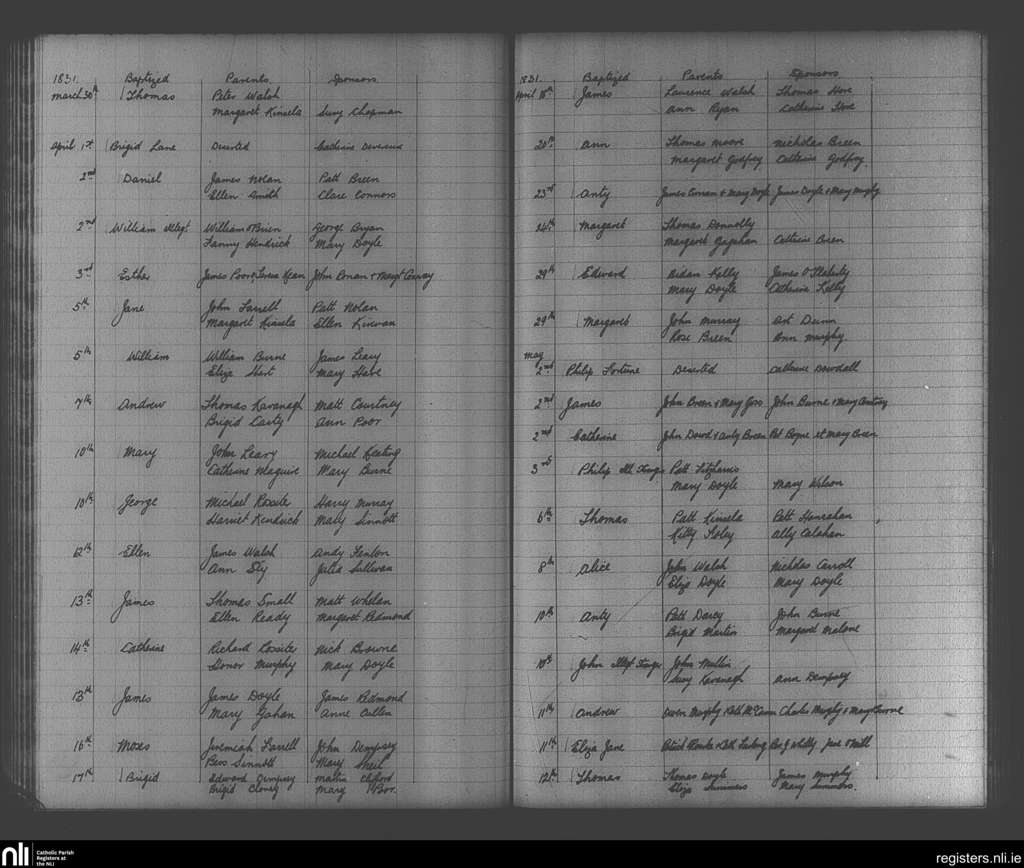 1831. Baptized Parents Sponsors
March 30th Thomas Peter Walsh
Margaret Kinsela Suny Chapman
April 1st Brigid Lane Deserted Catherine Devereux
2nd Daniel James Nolan Patt Breen
Ellen Smith Clare Connors
2nd William illegt William O'Brien George Bryan
Fanny Hendrick Mary Doyle
3rd Esther James Poor, Teresa Kean John Ronan + Margt Conway
5th Jane John Farrell Patt Nolan
Margaret Kinsela Ellen Kirwan
5th William William Burne James Leary
Eliza Hart Mary Hare
7th Andrew Thomas Kavanagh Matt Courtney
Brigid Carty Ann Poor
10th Mary John Leary Michael Keating
Catherine Maguire Mary Burne
10th George Michael Rossite Harry Murray
Harriet Kendrick Mary Sinnott
12th Ellen James Walsh Andy Fenlon
Ann Sly Julia Sullivan
13th James Thomas Small Matt Whelan
Ellen Ready Margaret Redmond
14th Catherine Richard Rossite Nick Browne
Honor Murphy Mary Doyle
13th James James Doyle James Redmond
Mary Gahan Anne Cullen
16th Moses Jeremiah Farrell John Dempsey
Bess Sinnott Mary Sheil
17th Brigid Edward Dempsey Martin Clifford
Brigid Cloney Mary Poor.
1831. Baptized Parents Sponsors
April 18th James Laurence Walsh Thomas Hore
Ann Ryan Catherine Hore
20th Ann Thomas Moore Nicholas Breen
Margaret Godfrey Catherine Godfrey
23rd Anty James Curran + Mary Doyle James Doyle + Mary Murphy
24th Margaret Thomas Donnolly
Margaret Gagahan Catherine Brien
29th Edward Aidan Kelly James O'Flaherty
Mary Doyle Catherine Kelly
29th Margaret John Murray Art Dunn
Rose Breen Ann Murphy
May
2nd Philip Fortune Deserted Catherine Dowdall
2nd James John Breen + Mary Goss John Burne + Mary Courtney
2nd Catherine John Dowd + Anty Breen Pat Boyne et Mary Breen
3rd Philip Patt Fitzharris
Mary Doyle Mary Wilson
6th Thomas Patt Kinsela Patt Hanrahan
Kitty Foley Ally Calahan
8th Alice John Walsh Nicholas Carroll
Eliza Doyle Mary Doyle
10th Anty Patt Darcy John Burne
Brigid Martin Margaret Malone
10th John John Mullin
Suny Kavanagh Ann Dempsey
11th Andrew Owen Murphy Kath McCann Charles Murphy + Mary Burne
11th Eliza Jane Patrick Rourke + Cath
12th Thomas Thomas Doyle James Murphy
Eliza Summers Mary Summers.
nli Catholic Parish
Registers at
the NLI
registers.nli.ie